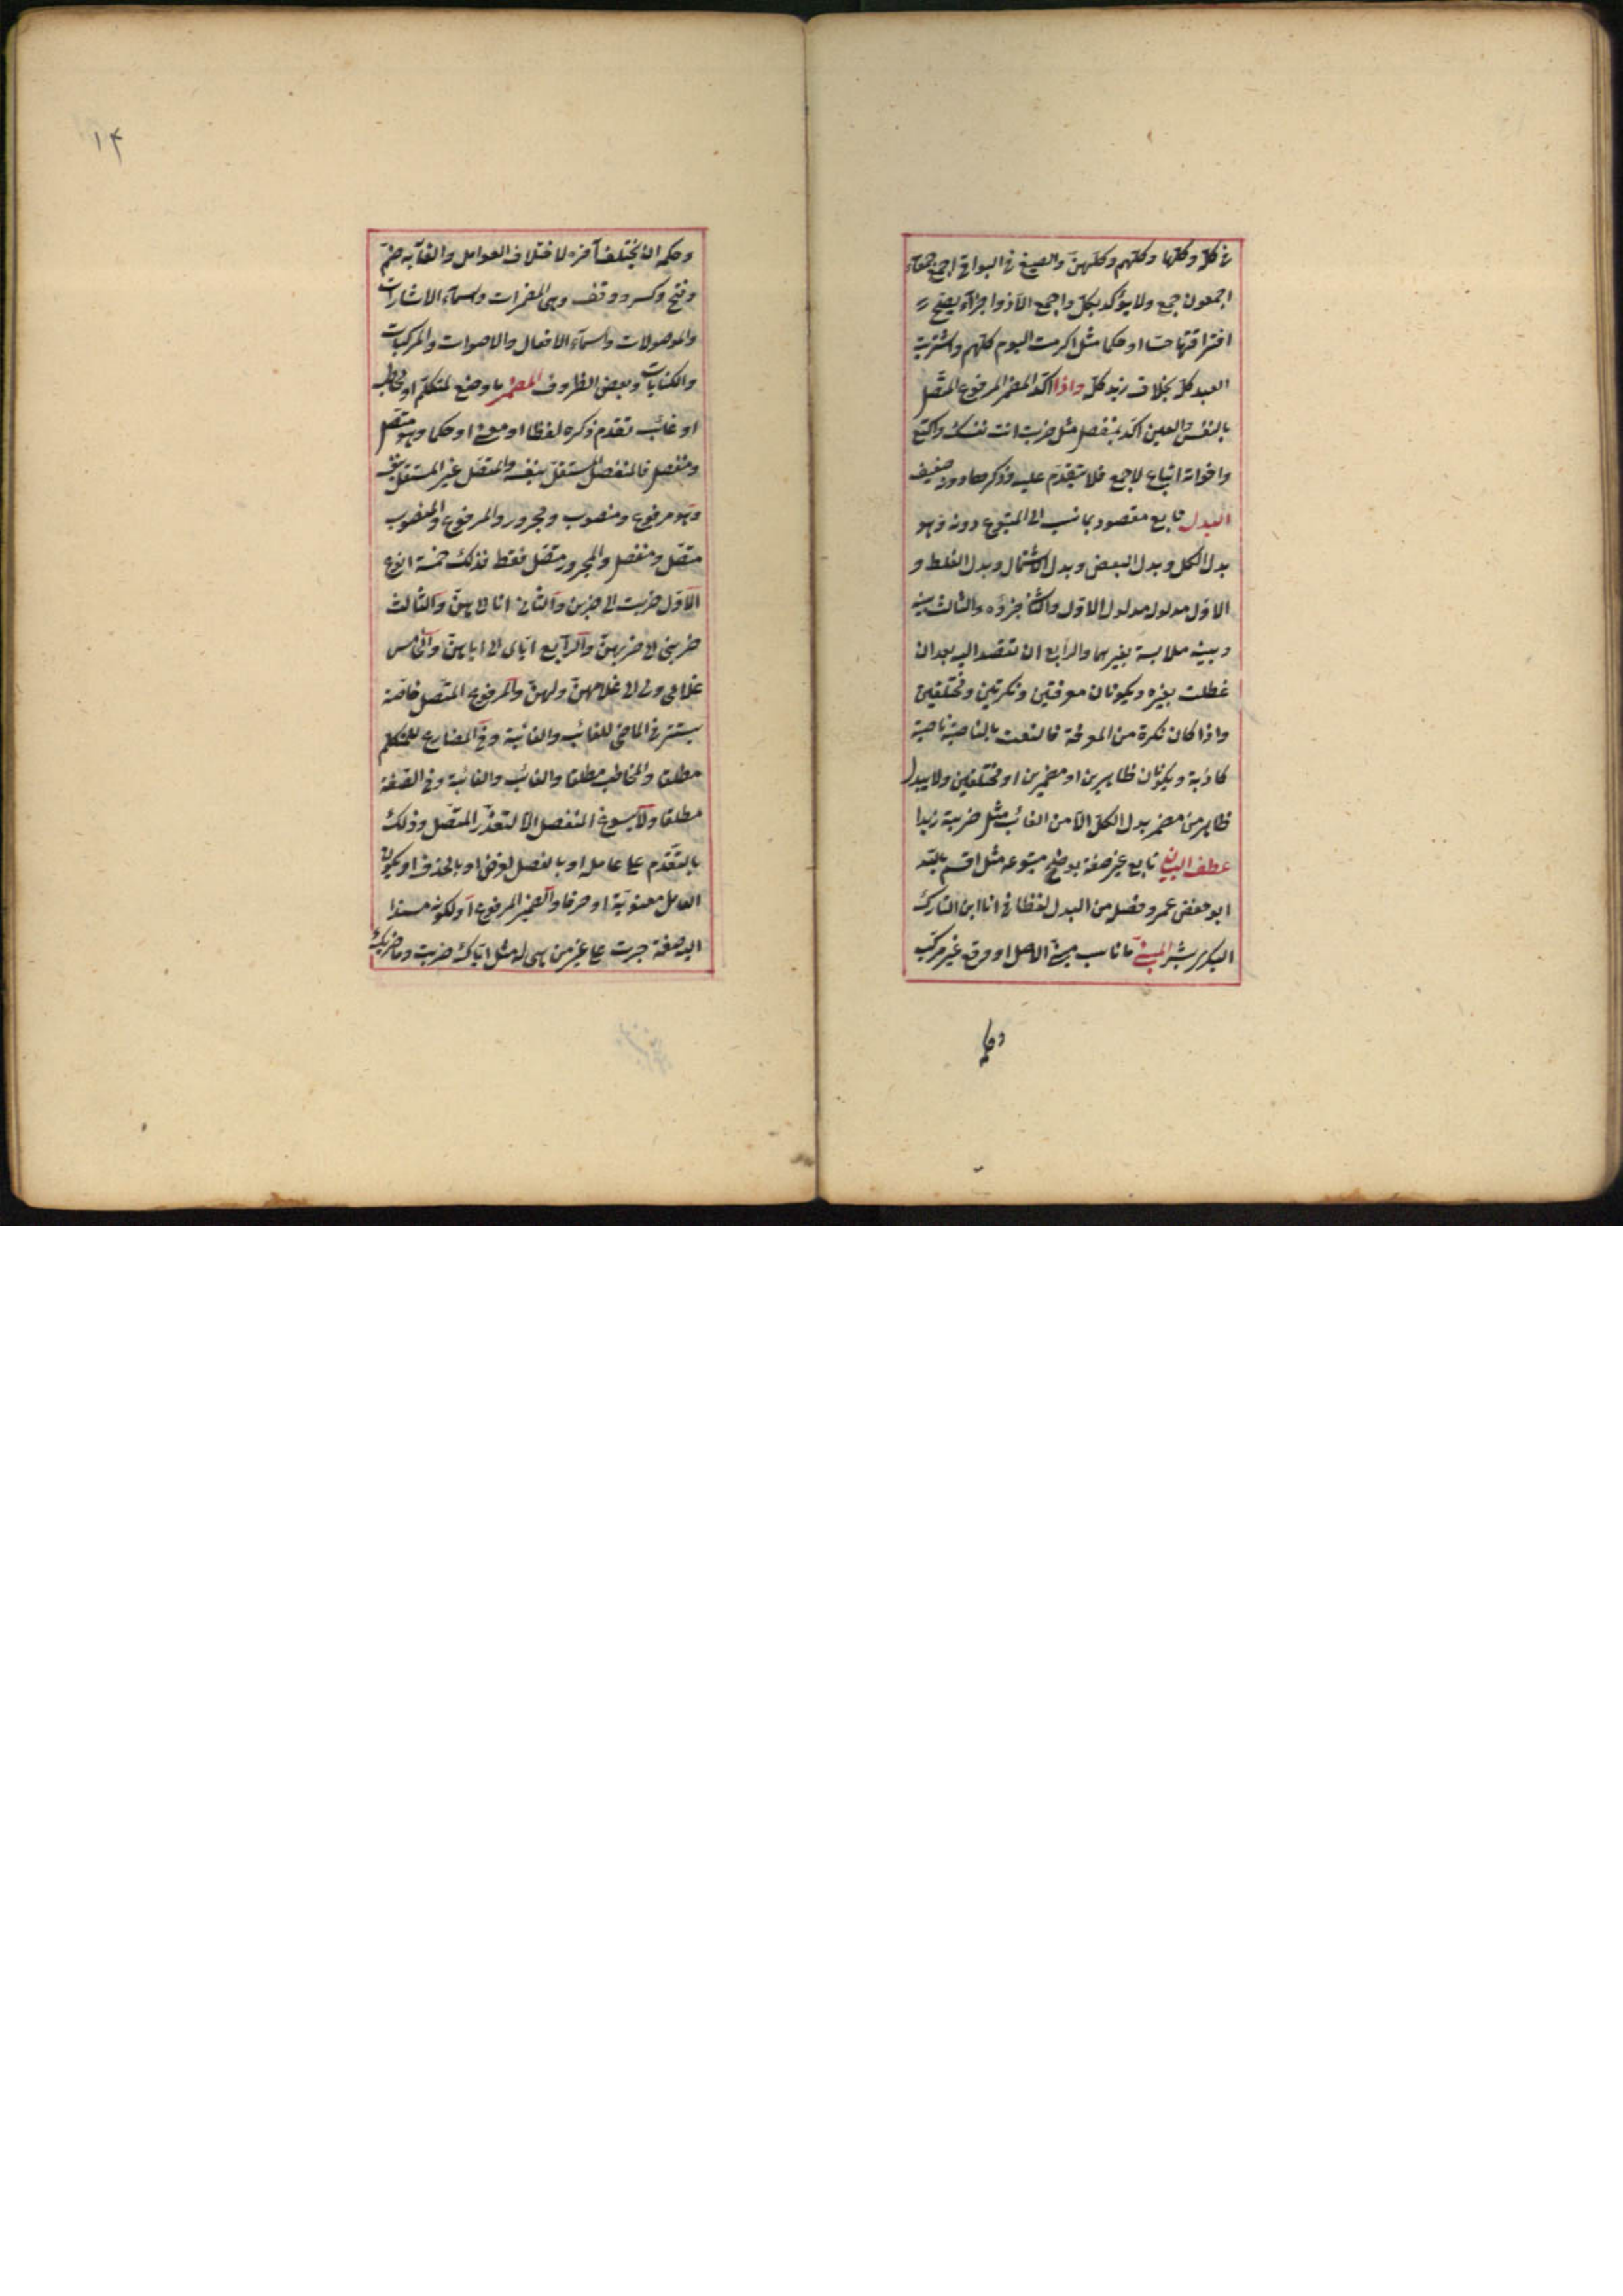 في كله وكلها وكلهم وكلهن والصيغ في البواقي اجمع جمعاء
اجمعون جمع ولا يؤكد بكل واجمع الا ذو اجزاء يصح
افتراقها حسا او حكما مثل اكرمت اليوم كلهم واشتريت
العبد كله بخلاف زيد كله واذا اكد المضمر المرفوع المتصل
بالنفس والعين اكد بمنفصل مثل ضربت انت نفسك واكتع
واخواته اتباع لاجمع فلا يتقدم عليه وذكرها دونه ضعيف
البدل تابع مقصود بما نسب الى المتبوع دونه وهو
بدل الكل وبدل البعض وبدل الاشتمال وبدل الغلط و
الاول مدلوله مدلول الاول والثاني جزؤه والثالث بينه
وبينه ملابسة بغيرهما والرابع ان تقصد اليه بعد ان
غلطت بغيره ويكونان معرفتين ونكرتين ومختلفين
واذا كان نكرة من المعرفة فالنعت بالناصية ناصية
كاذبة ويكونان ظاهرين او مضمرين او مختلفين ولا يبدل
ظاهر من مضمر بدل الكل الا من الغائب مثل ضربته زيدا
عطف البيان تابع غير صفة يوضح متبوعه مثل اقسم بالله
ابو حفص عمر وفصله من البدل لفظا في انا ابن التارك
البكري بشر المبني ما ناسب مبني الاصل او وقع غير مركب
وحكمه
١٤
وحكمه ان لا يختلف آخره لاختلاف العوامل والقابه ضم
وفتح وكسر ووقف وهي المضمرات واسماء الاشارات
والموصولات واسماء الافعال والاصوات والمركبات
والكنايات وبعض الظروف المضمر ما وضع لمتكلم او مخاطب
او غائب تقدم ذكره لفظا او معنى او حكما وهو متصل
ومنفصل فالمنفصل المستقل بنفسه والمتصل غير المستقل بنفسه
وهو مرفوع ومنصوب ومجرور والمرفوع والمنصوب
متصل ومنفصل والمجرور متصل فقط فذلك خمسة انواع
الاول ضربت الى ضربن والثاني انا الى هن والثالث
ضربني الى ضربهن والرابع اياي الى اياهن والخامس
غلامي ولي الى غلامهن ولهن والمرفوع المتصل خاصة
يستتر في الماضي للغائب والغائبة وفي المضارع للمتكلم
مطلقا والمخاطب مطلقا والغائب والغائبة وفي الصفة
مطلقا ولا يسوغ المنفصل الا لتعذر المتصل وذلك
بالتقدم على عامله او بالفصل لغرض او بالحذف او بكون
العامل معنويا او حرفا والضمير المرفوع او لكونه مسندا
اليه صفة جرت على غير من هي له مثل اياك ضربت وما ضربك